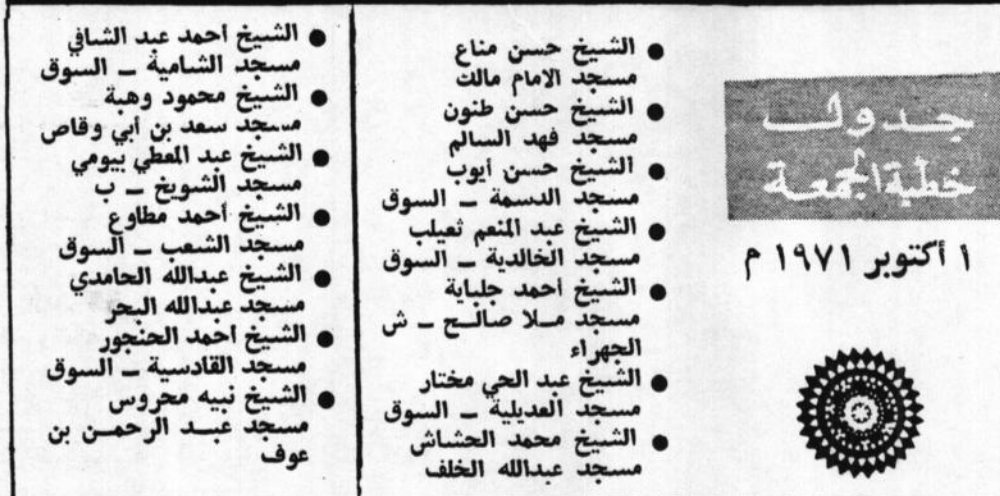 جدول
خطبة الجمعة
١ أكتوبر ١٩٧١ م
● الشيخ حسن مناع
مسجد الامام مالك
● الشيخ حسن طنون
مسجد فهد السالم
● الشيخ حسن أيوب
مسجد الدسمة ــ السوق
● الشيخ عبد المنعم تعيلب
مسجد الخالدية ــ السوق
● الشيخ أحمد جلباية
مسجد مـلا صالــح ــ ش
الجهراء
● الشيخ عبد الحي مختار
مسجد العديلية ــ السوق
● الشيخ محمد الحشاش
مسجد عبدالله الخلف
● الشيخ أحمد عبد الشافي
مسجد الشامية ــ السوق
● الشيخ محمود وهبة
مسجد سعد بن أبي وقاص
● الشيخ عبد المعطي بيومي
مسجد الشويخ ــ ب
● الشيخ أحمد مطاوع
مسجد الشعب ــ السوق
● الشيخ عبدالله الحامدي
مسجد عبدالله البحر
● الشيخ أحمد الحنجور
مسجد القادسية ــ السوق
● الشيخ نبيه محروس
مسجد عبــد الرحمــن بن
عوف